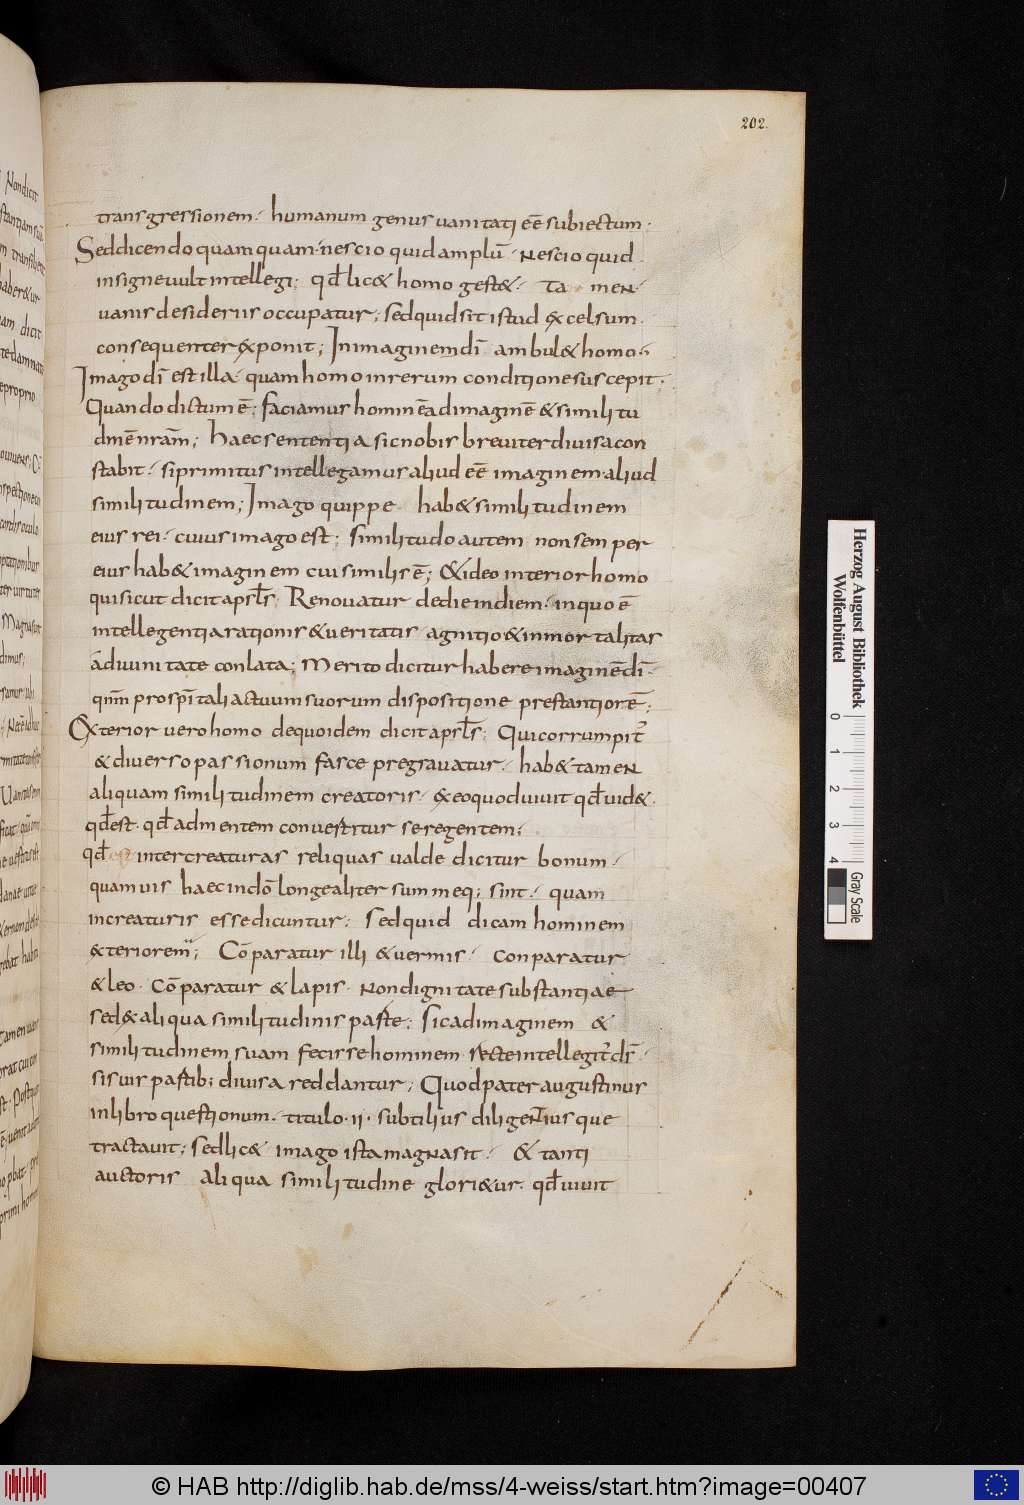 202.
transgressionem· humanum genus uanitati eē subiectum·
Sed dicendo quamquam· nescio quid amplū· Nescio quid
insigne uult intellegi; qđ lic& homo gest&· Tamen·
uanis desideriis occupatur; sed quid sit istud excelsum·
consequenter exponit; In imaginem dī ambul& homo·
Imago dī est illa quam homo in rerum conditione suscepit·
Quando dictum ē; faciamus hominē ad imaginē & similitu
dinē nrām; Haec sententia sic nobis breuiter diuisa con
stabit· si primitus intellegamus aliud eē imaginem· aliud
similitudinem; Imago quippe hab& similitudinem
eius rei· cuius imago est; similitudo autem non semper
eius hab& imaginem cui similis ē; & ideo interior homo
qui sicut dicit apsłs Renouatur de die in diem· in quo ē
intellegentia rationis & ueritatis agnitio & inmortalitas
a diuinitate conlata; merito dicitur habere imaginē dī·
qnm̄ prospītali actuum suorum dispositione prestantior ē;
Exterior uero homo de quo idem dicit apsłs; Qui corrumpit̄
& diuerso passionum fasce pregrauatur· hab& tamen
aliquam similitudinem creatoris· ex eo quod uiuit qđ uid&·
qđ est· qđ ad mentem conuertitur se regentem;
qđ est inter creaturas reliquas ualde dicitur bonum·
quamuis haec in dō longe aliter summeq; sint· quam
in creaturis esse dicuntur; Sed quid dicam hominem
exteriorem; Cōparatur illi & uermis· conparatur
& leo· cōparatur & lapis· Non dignitate substantiae
sed ex aliqua similitudinis parte; Sic ad imaginem &
similitudinem suam fecisse hominem recte intellegit̄ ds̄·
si suis partib; diuisa reddantur; Quod pater augustinus
in libro questionum· titulo· ii· subtilius diligentiusque
tractauit; sed lic& imago ista magna sit· & tanti
auctoris aliqua similitudine glori&ur· qđ uiuit
Herzog August Bibliothek
Wolfenbüttel
0 1 2 3 4
Gray Scale
© HAB http://diglib.hab.de/mss/4-weiss/start.htm?image=00407